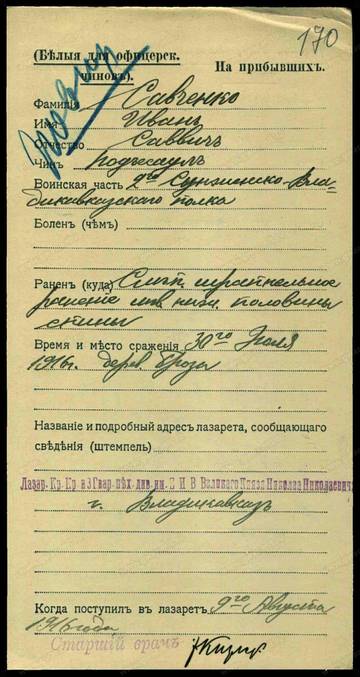 170
(Бѣлыя для офицерск. чиновъ).
На прибывшихъ.
Фамилія Савченко
Имя Иванъ
Отчество Саввичъ
Чинъ Подъесаулъ
Воинская часть 2го Сунженско-Вла-
дикавказскаго полка
Боленъ (чѣмъ)
Раненъ (куда) шрапнельное
ранение половины
спины
Время и мѣсто сраженія 30го Іюля
1916г. дерев.
Названіе и подробный адресъ лазарета, сообщающаго
свѣдѣнія (штемпель)
Лазар. Кр. Кр. 3 Гвар. пѣх. див. им. Е И В Великаго Князя Николая Николаевича
г. Владикавказъ
Когда поступилъ въ лазаретъ 9го Августа
1916 года
Старшій врачъ